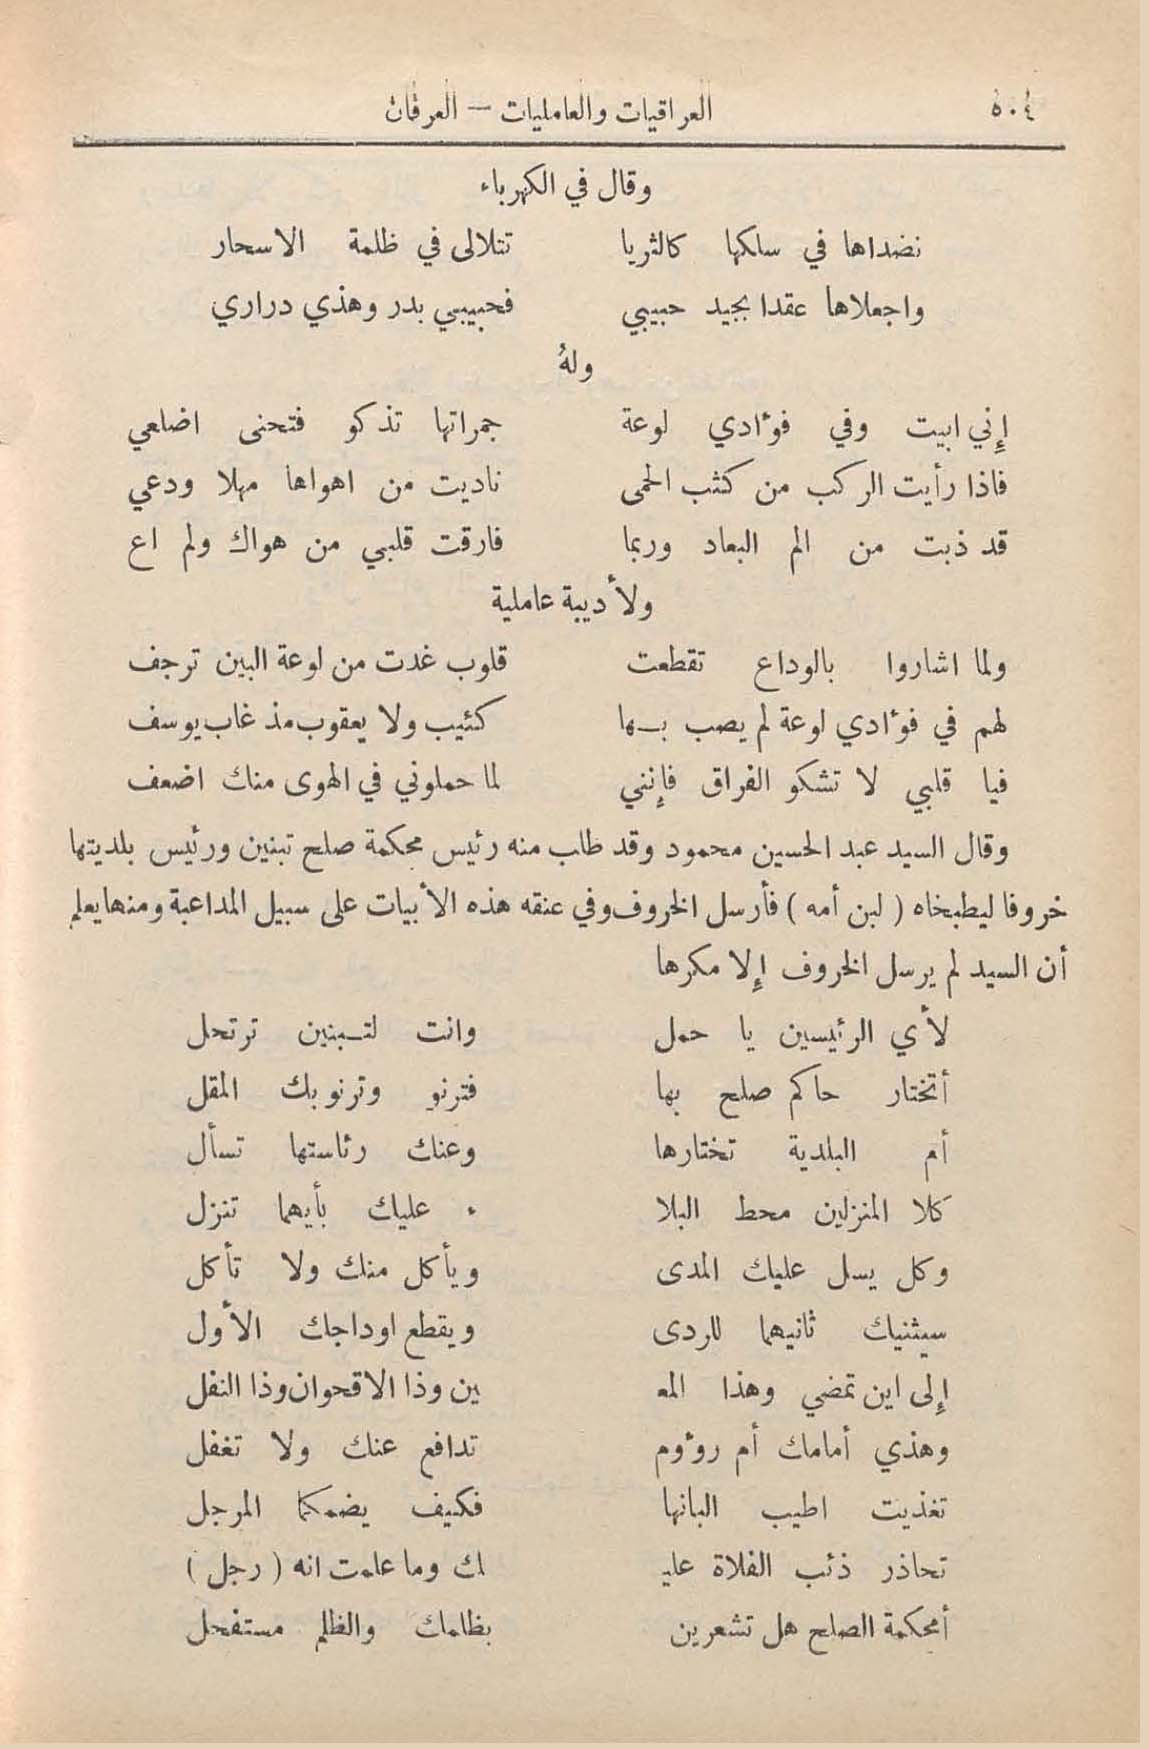 ٥٠٤ العراقيات والعامليات — العرفان
وقال في الكهرباء
نضداها في سلكها كالثريا تتلالى في ظلمة الاسحار
واجعلاها عقدا بجيد حبيبي فحبيبي بدر وهذي دراري
ولهُ
إني ابيت وفي فوٴادي لوعة جمراتها تذكو فتحنى اضلعي
فاذا رأيت الركب من كثب الحمى ناديت من اهواها مهلا ودعي
قد ذبت من الم البعاد وربما فارقت قلبي من هواك ولم اع
ولأديبة عاملية
ولما اشاروا بالوداع تقطعت قلوب غدت من لوعة البين ترجف
لهم في فوٴادي لوعة لم يصب بـها كئيب ولا يعقوب مذ غاب يوسف
فيا قلبي لا تشكو الفراق فإنني لما حملوني في الهوى منك اضعف
وقال السيد عبد الحسين محمود وقد طلب منه رئيس محكمة صلح تبنين ورئيس بلديتها
خروفا ليطبخاه ( لبن أمه ) فأرسل الخروف وفي عنقه هذه الأبيات على سبيل المداعبة ومنها يعلم
أن السيد لم يرسل الخروف إلا مكرها
لأي الرئيسين يا حمل وانت لتـبنين ترتحل
أتختار حاكم صلح بها فترنو وترنو بك المقل
أم البلدية تختارها وعنك رئاستها تسأل
كلا المنزلين محط البلا ء عليك بأيهما تنزل
وكل يسل عليك المدى ويأكل منك ولا تأكل
سيثنيك ثانيهما للردى ويقطع اوداجك الأول
إلى اين تمضي وهذا المعـ ين وذا الاقحوان وذا النفل
وهذي أمامك أم روٴوم تدافع عنك ولا تغفل
تغذيت اطيب البانها فكيف يضمكما المرجل
تحاذر ذئب الفلاة عليـ ك وما علمت انه ( رجل )
أمحكمة الصلح هل تشعرين بظلمك والظلم مستفحل